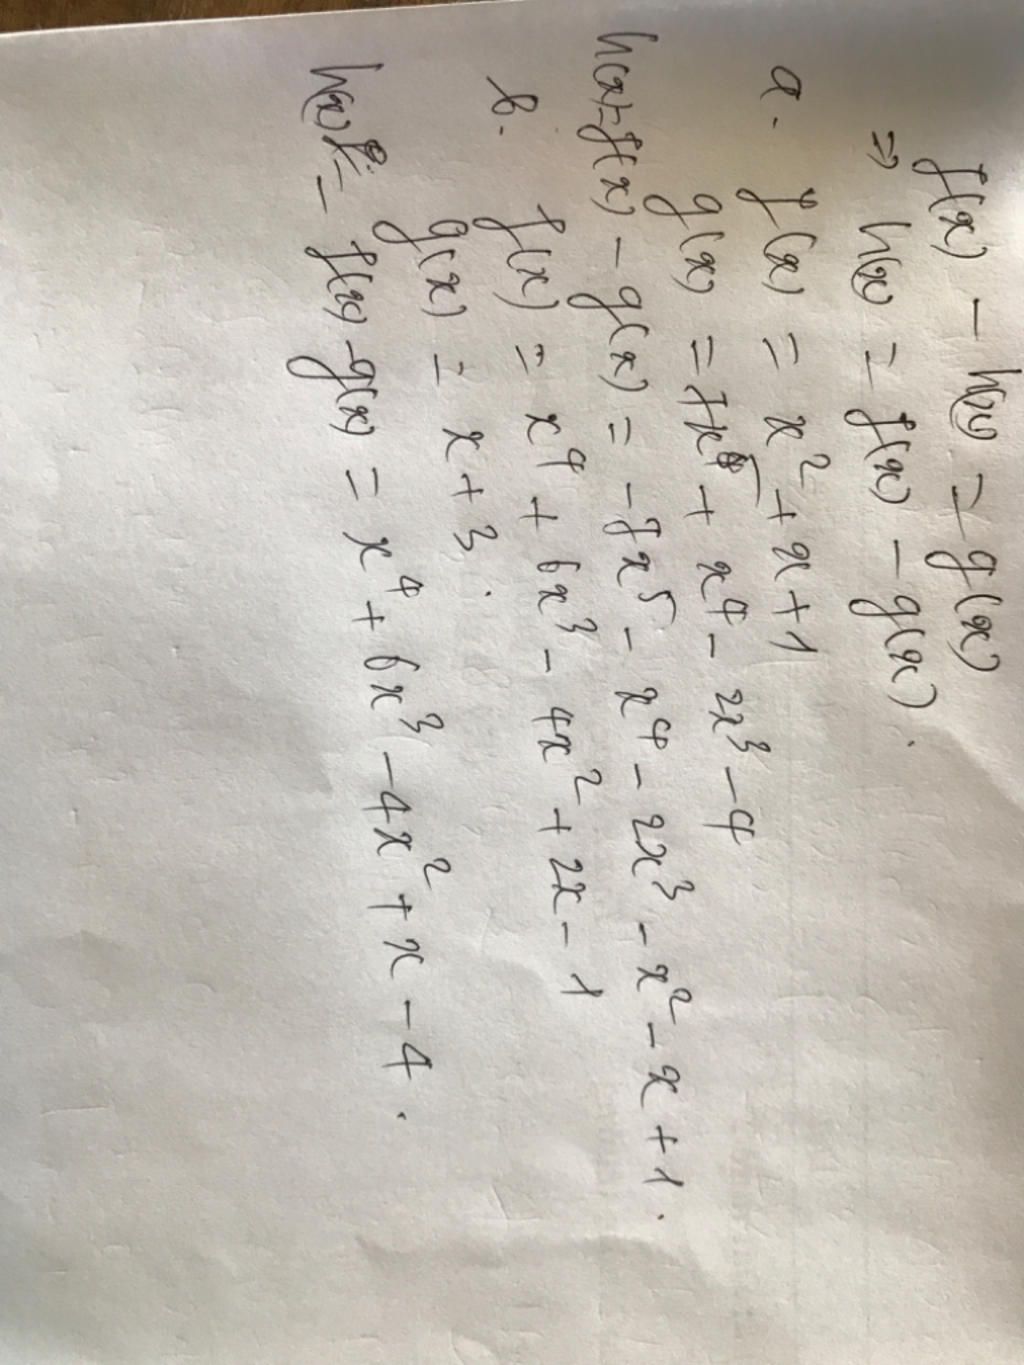 f(x) - h(x) = g(x)
⇒ h(x) = f(x) - g(x).
a. f(x) = x² + x + 1
g(x) = 7x⁵ + x⁴ - 2x³ - 4
h(x) = f(x) - g(x) = -7x⁵ - x⁴ - 2x³ - x² - x + 1.
b. f(x) = x⁴ + 6x³ - 4x² + 2x - 1
g(x) = x + 3.
h(x) = f(x) - g(x) = x⁴ + 6x³ - 4x² + x - 4.